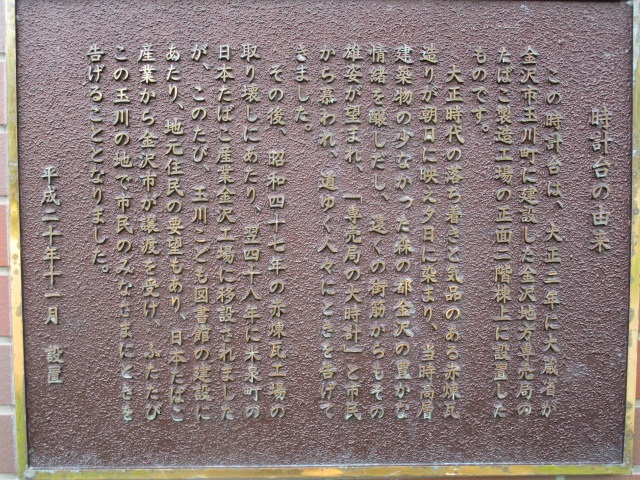 時計台の由来
この時計台は、大正三年に大蔵省が
金沢市玉川町に建設した金沢地方専売局の
たばこ製造工場の正面二階棟上に設置した
ものです。
大正時代の落ち着きと気品のある赤煉瓦
造りが朝日に映え夕日に染まり、当時高層
建築物の少なかった森の都金沢の豊かな
情緒を醸しだし、遠くの街筋からもその
雄姿が望まれ、「専売局の大時計」と市民
から慕われ、道ゆく人々にときを告げて
きました。
その後、昭和四十七年の赤煉瓦工場の
取り壊しにあたり、翌四十八年に米泉町の
日本たばこ産業金沢工場に移設されました
が、このたび、玉川こども図書館の建設に
あたり、地元住民の要望もあり、日本たばこ
産業から金沢市が譲渡を受け、ふたたび
この玉川の地で市民のみなさまにときを
告げることとなりました。
平成二十年十一月 設置